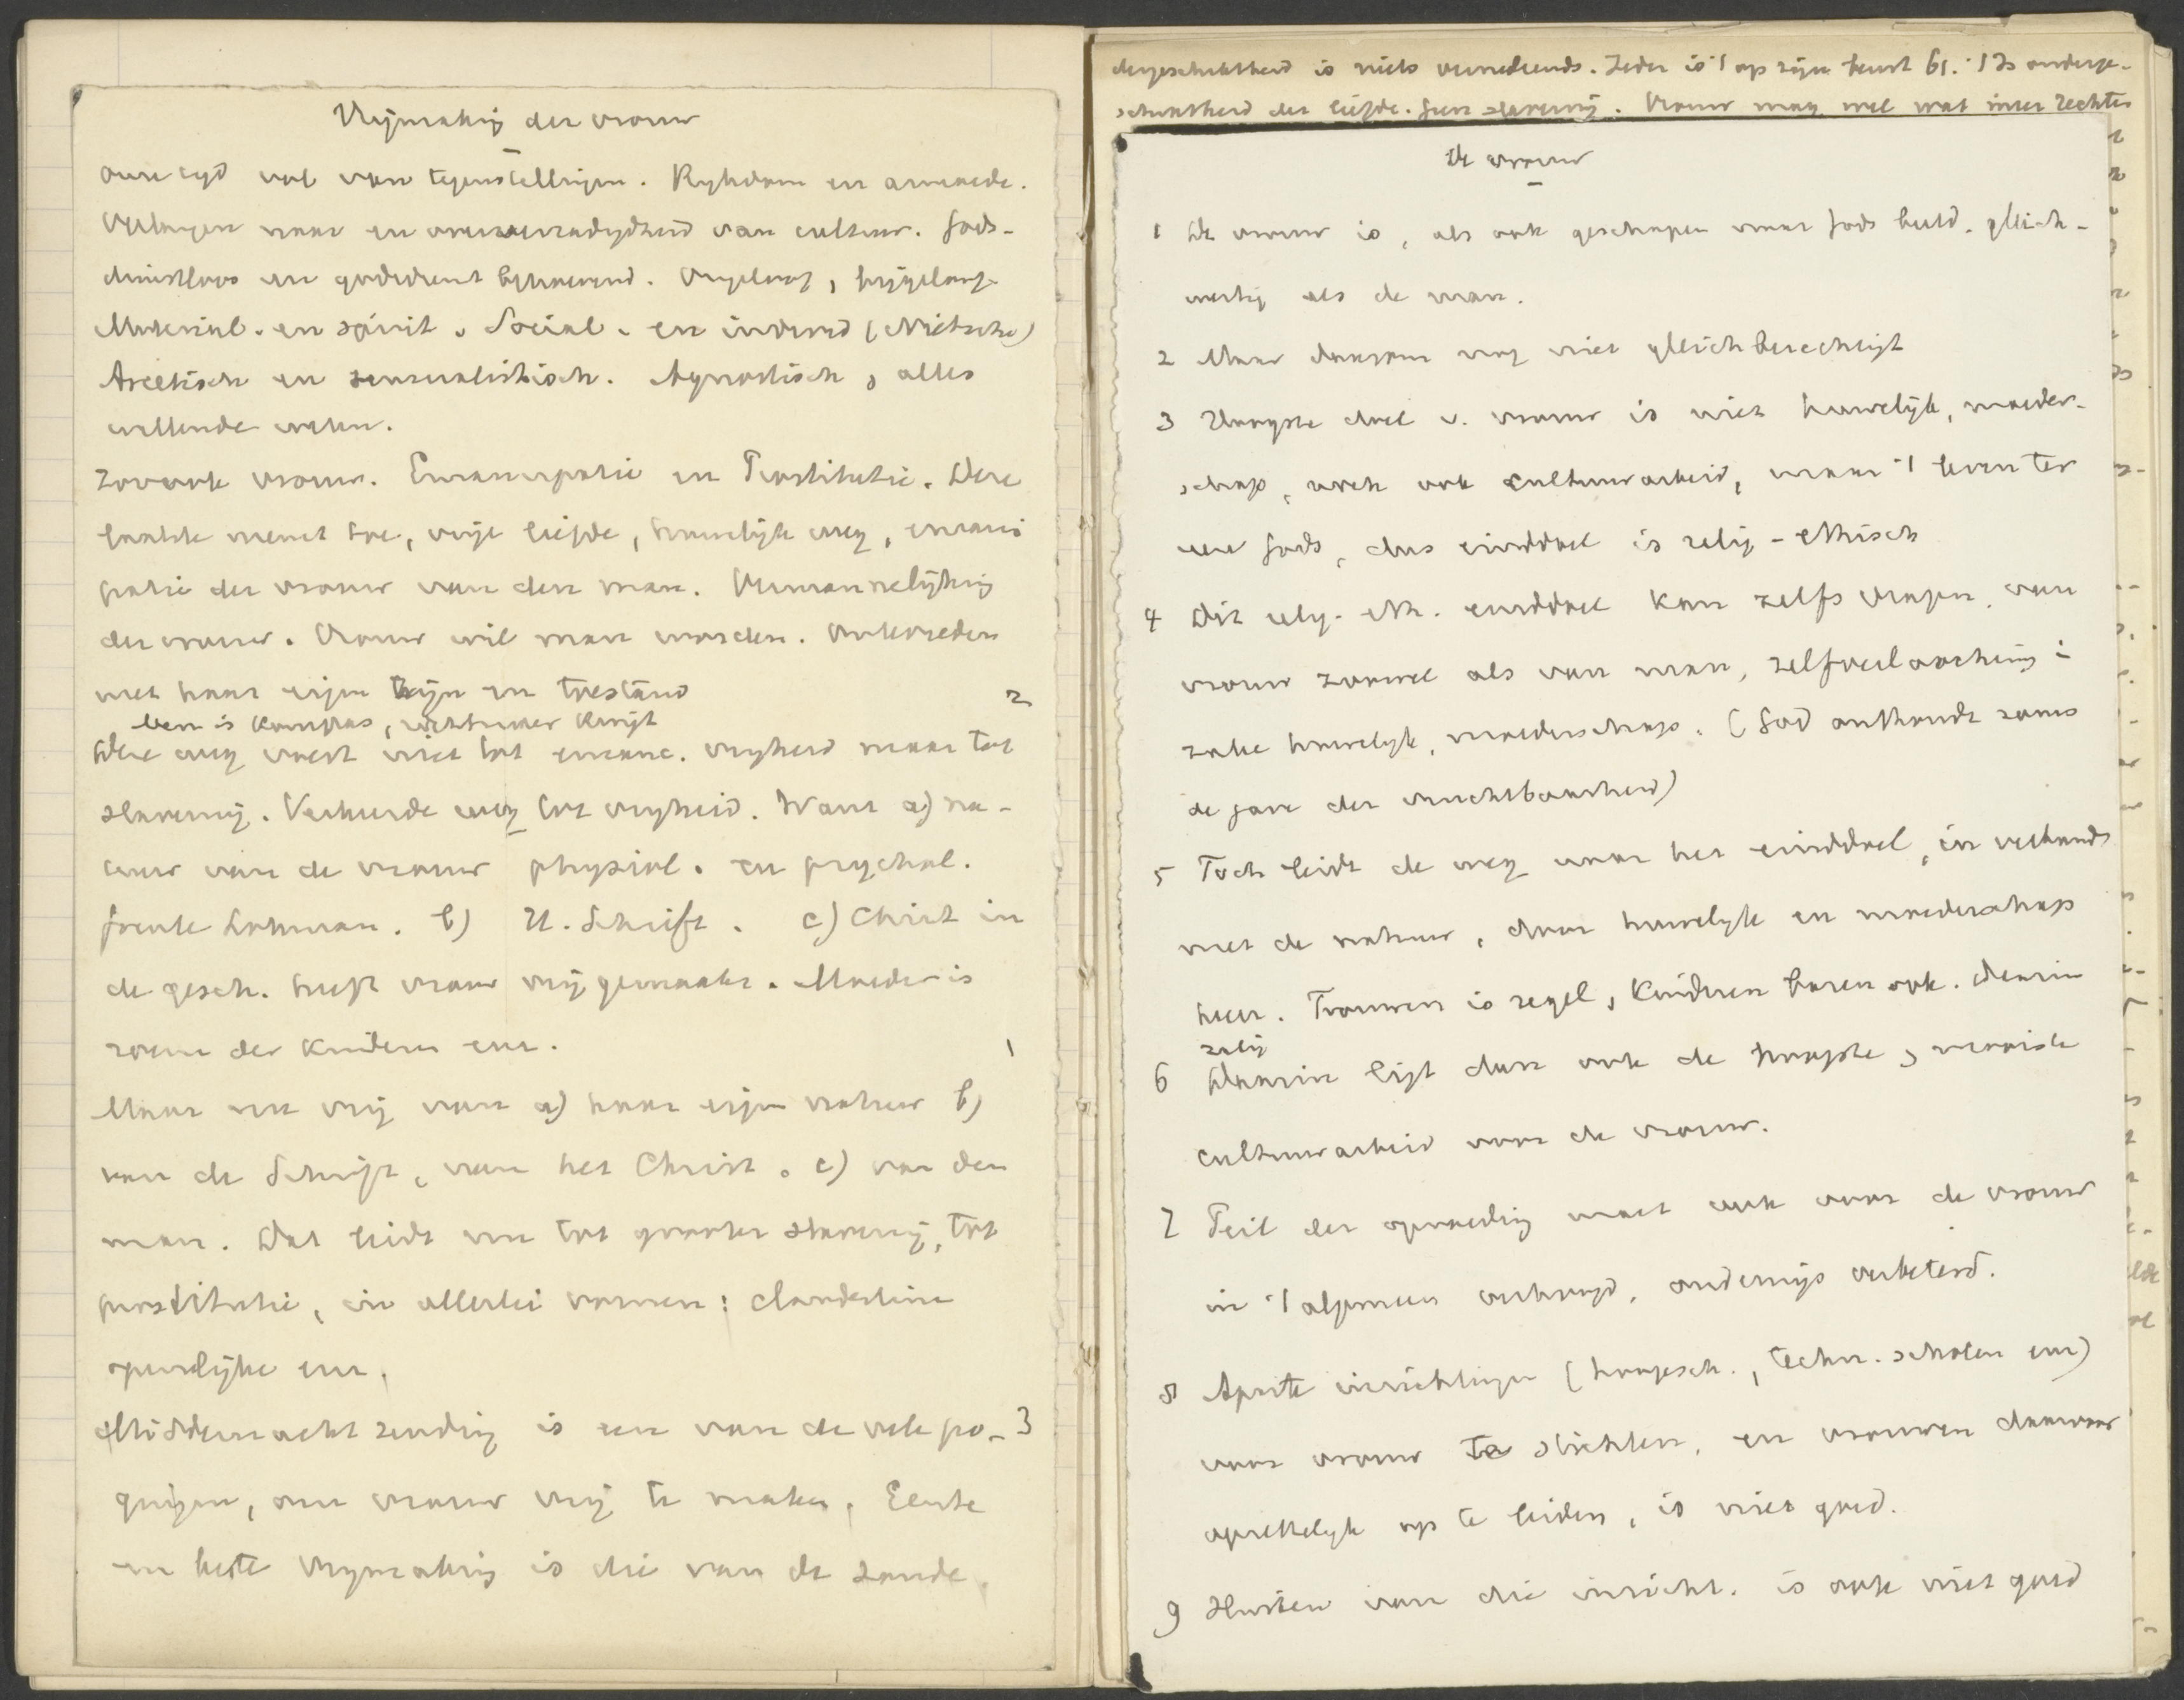 Vrijmaking der vrouw
Onze tijd vol van tegenstellingen. Rykdom en armoede.
Verlangen naar en van cultuur. Gods-
dienstloos en godsdienst behoevend. Ongeloof, bijgeloof.
Material. en spirit. Social. en individ (Nietsche)
Ascetisch en sensualistisch. Agnostisch, alles
willende weten.
Zoo ook vrouw. Emancipatie en Prostitutie. Deze
laatste neemt toe, vrije liefde, huwelijk weg, emanci
patie der vrouw van den man. Vermannelijking
der vrouw. Vrouw wil man worden. Ontevreden
met haar eigen zijn en toestand 2
ben is kompas,
Deze weg voert niet tot emanc. vryheid maar tot
slavernij. Verkeerde weg tot vryheid. Want a) na-
tuur van de vrouw physiol. en psychol.
Lohman. b) H. Schrift. c) Christ in
de gesch. heeft vrouw vrij gemaakt. Moeder is
der kinderen enz. 1
Maar nu vrij van a) haar eigen natuur b)
van de Schrift, van het Christ. c) van den
man. Dat leidt nu tot grooter slavernij, tot
prostitutie, in allerlei vormen: clandestine
openlijke enz.
Middernachtzending is een van de vele po- 3
gingen, om vrouw vrij te maken. Eerste
en beste vrymaking is die van de zonde.
dergeschiktheid is niets vernederends. Ieder is 't op zijn beurt bv. 't Is onderge-
schiktheid der liefde. Geen slavernij. Vrouw mag wel wat meer rechten
De vrouw
1 De vrouw is, als ook geschapen naar Gods beeld. gelijk-
waardig als de man.
2 Maar daarom nog niet gelijkberechtigt
3 Hoogste doel v. vrouw is niet huwelijk, moeder-
schap, noch ook cultuurarbeid, maar 't leven ter
eere Gods, dus einddoel is relig-ethisch
4 Dit relig-eth. einddoel kan zelfs vragen, van
vrouw zoowel als van man, zelfverloochening i
zake huwelyk, moederschap. (God onthoudt soms
de gave der vruchtbaarheid)
5 Toch leidt de weg naar het einddoel, in verband
met de natuur, door huwelyk en moederschap
heen. Trouwen is regel, kinderen baren ook. daarin
zalig
6 Daarin ligt dan ook de hoogste, mooiste
cultuurarbeid voor de vrouw.
7 Peil der opvoeding moet ook voor de vrouw
in 't algemeen verhoogd, onderwijs verbeterd.
8 Aparte inrichtingen (hoogesch., techn. scholen enz)
voor vrouw te stichten, en vrouwen daarvoor
opzettelyk op te leiden, is niet goed.
9 Sluiten van die inricht. is ook niet goed